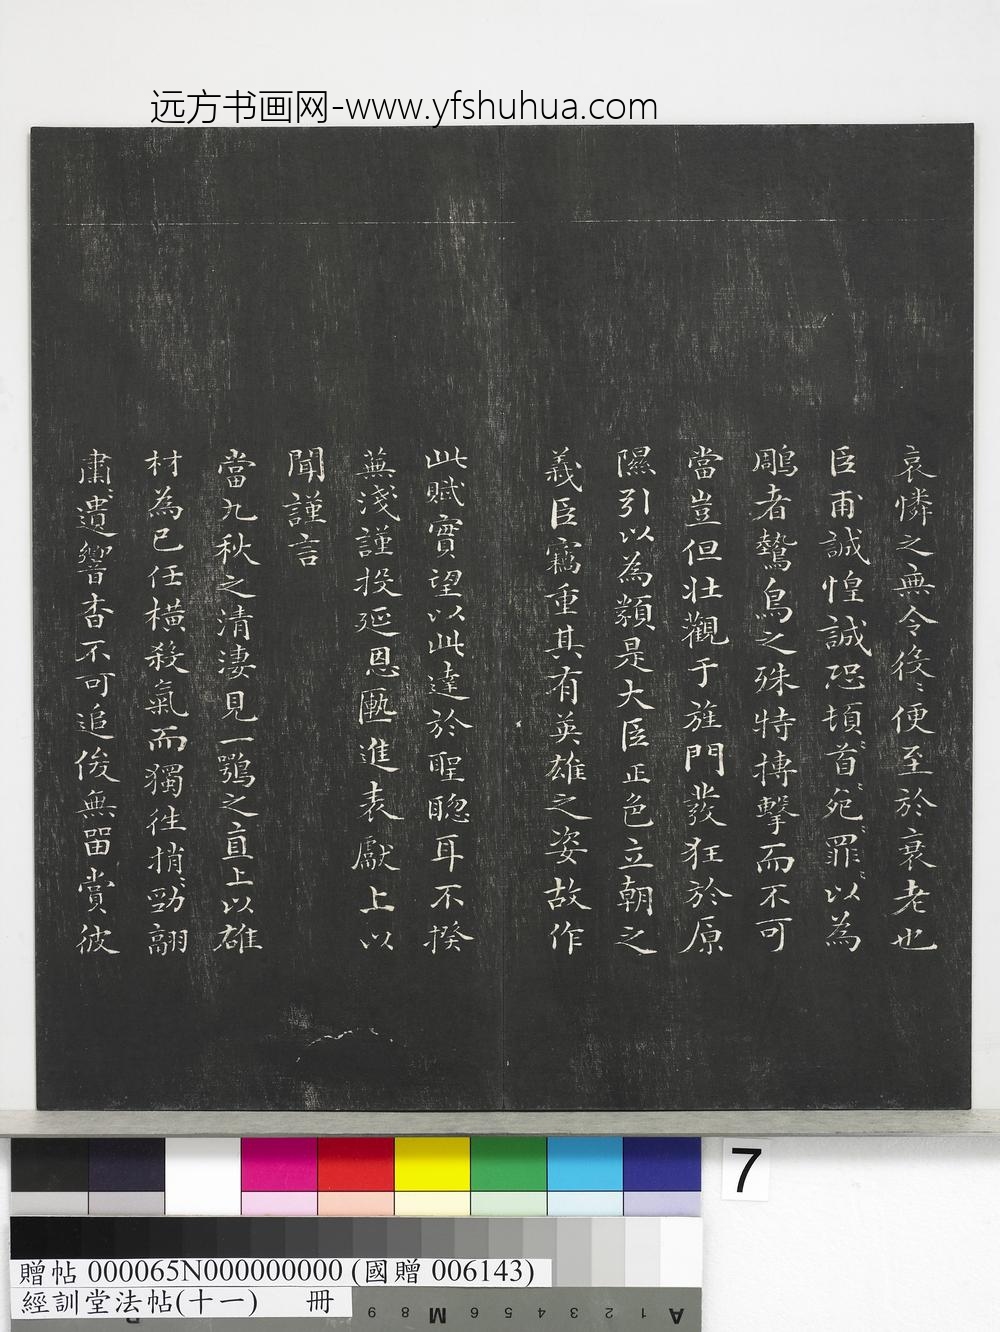 远方书画网-www.yfshuhua.com
哀憐之無令役〻便至於衰老也
臣甫誠惶誠恐頓〻首〻死〻罪〻以為
鵰者鷙鳥之殊特搏擊而不可
當豈但壯觀于旌門發狂於原
隰引以為類是大臣正色立朝之
義臣竊重其有英雄之姿故作
此賦實望以此達於聖聰耳不揆
蕪淺謹投延恩匭進表獻上以
聞謹言
當九秋之清淒見一鶚之直上以雄
材為己任橫殺氣而獨往捎〻勁翮
肅〻遺響杳不可追俊無留賞彼
7
贈帖 000065N000000000 (國贈 006143)
經訓堂法帖(十一) 冊
9 8 M 6 5 4 3 2 1 A